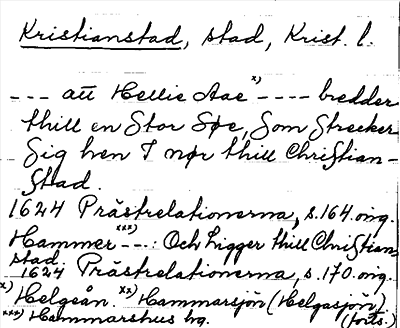 Kristianstad, stad, Krist. l.
--- att Hellie Aae x) ---- bredder
thill en Stor Søe, Som Strecker
Sig hen I nør thill Christian-
stad.
1624 Prästrelationerna, s. 164. orig.
Hammer xxx) --- Och Ligger thill Christian
stad.
1624 Prästrelationerna, s. 170. orig.
x) Helgeån. xx) Hammarsjön (Helgasjön)
xxx) Hammarshus hg. (forts.)